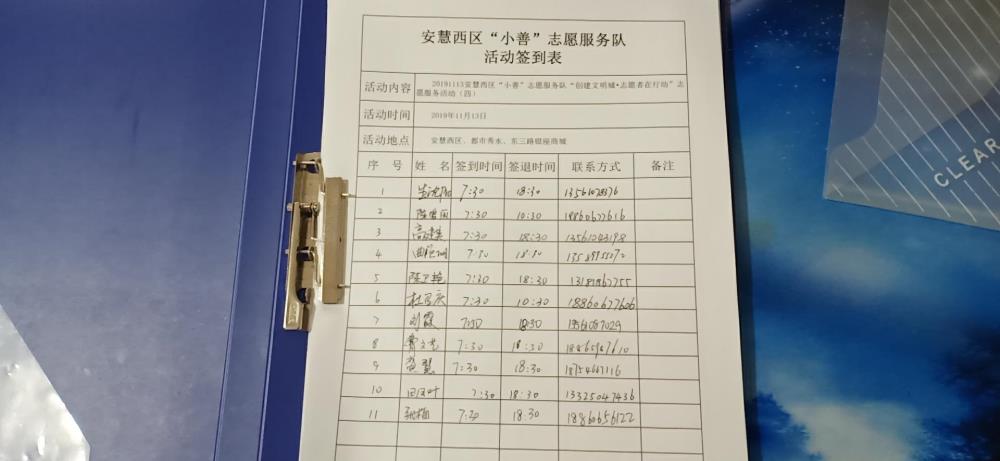 安慧西区“小善”志愿服务队
活动签到表
活动内容 20191113安慧西区“小善”志愿服务队“创建文明城·志愿者在行动”志
愿服务活动（四）
活动时间 2019年11月13日
活动地点 安慧西区、都市秀水、东三路银座商城
序 号 姓 名 签到时间 签退时间 联系方式 备注
1 7:30 18:30
2 7:30 10:30 18860677616
3 7:30 18:30 13561243198
4 7:30 18:30
5 陈卫艳 7:30 18:30
6 杜同庆 7:30 10:30 18860677606
7 刘霞 7:30 18:30
8 曹文艺 7:30 18:30
9 7:30 18:30 18754667116
10 田风叶 7:30 18:30 13325047436
11 张梅 7:30 18:30 18860656122
CLEAR